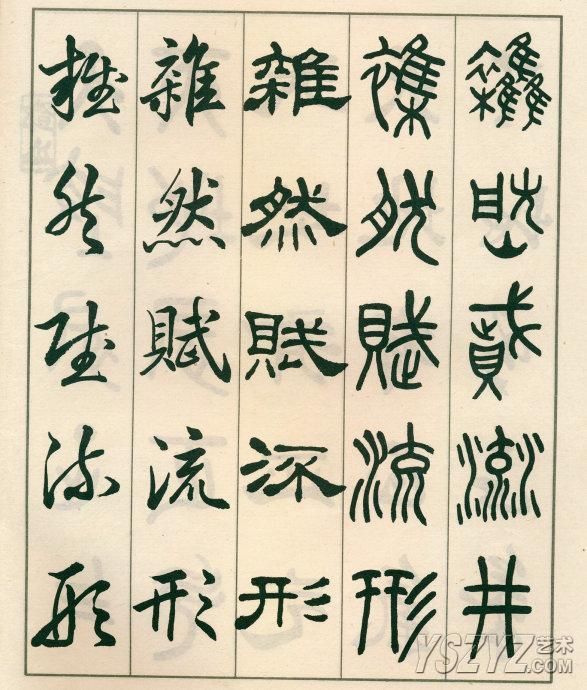 雜然賦流形
雜然賦流形
雜然賦流形
雜然賦流形
雜然賦流形
YSZYZ艺术